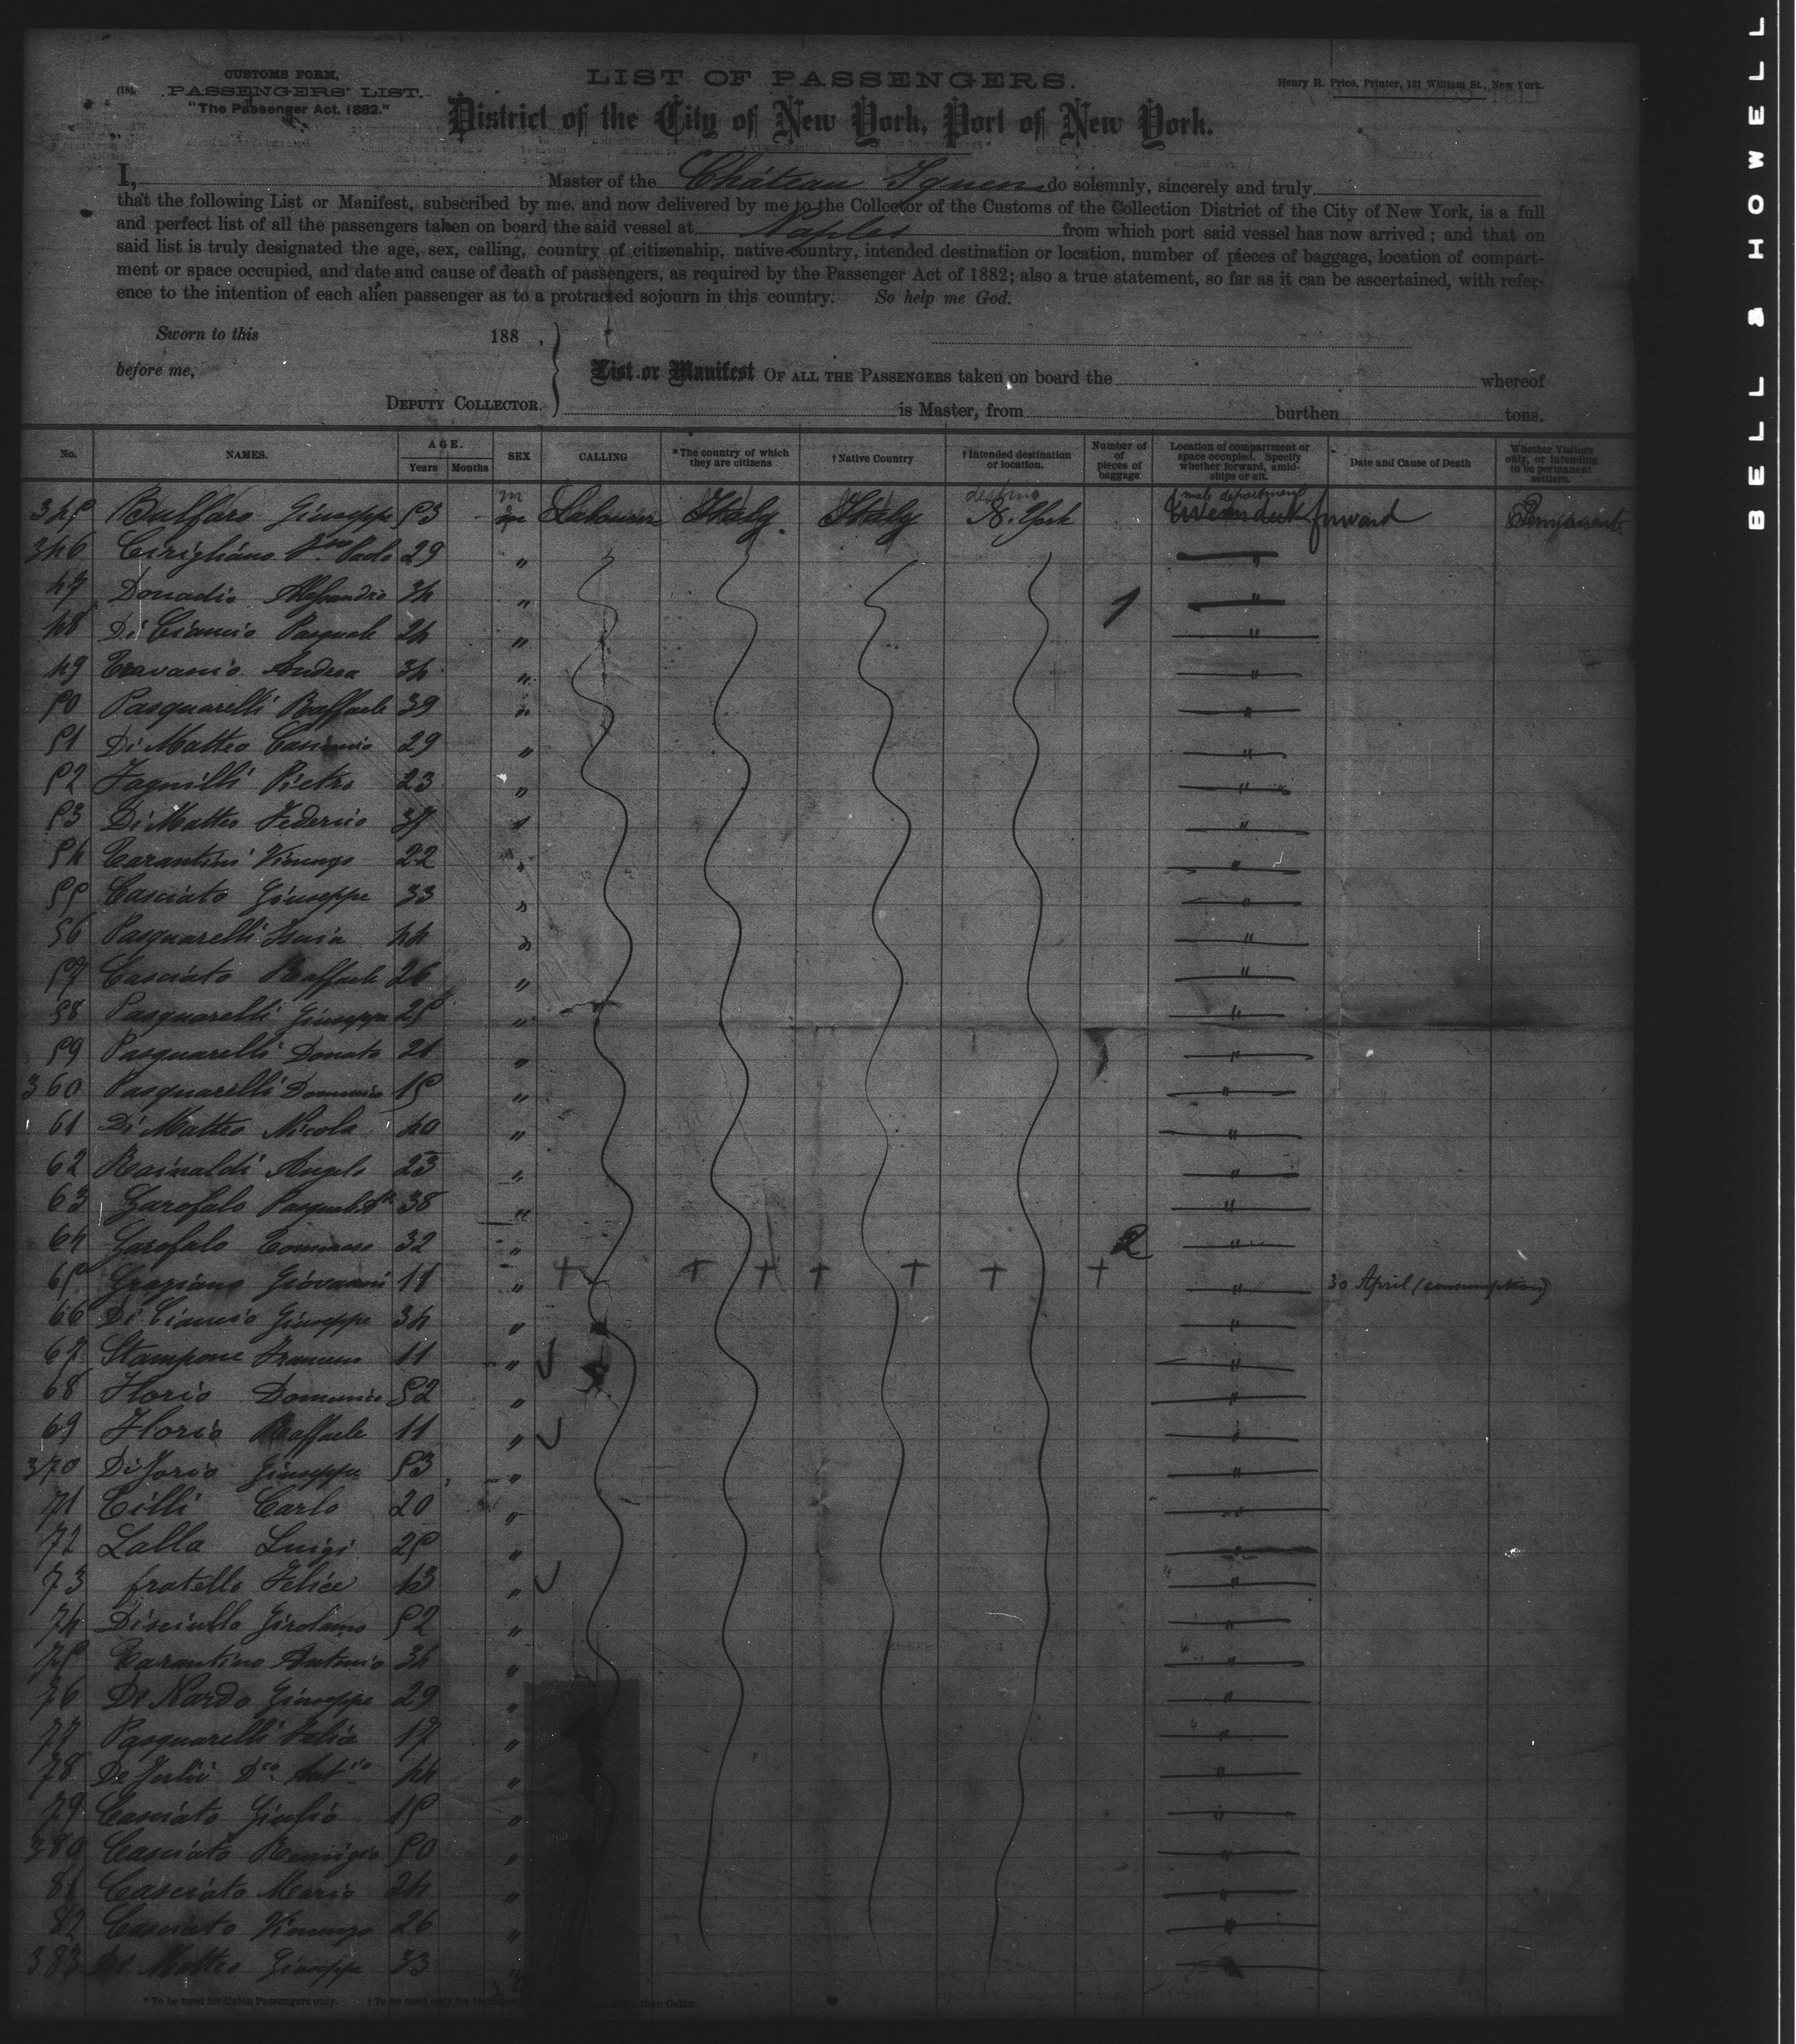 BELL & HOWELL
CUSTOMS FORM,
(18). PASSENGERS' LIST.
"The Passenger Act, 1882."
LIST OF PASSENGERS.
Henry H. Price, Printer, 131 William St., New York.
District of the City of New York, Port of New York.
I, Master of the Château Yquem do solemnly, sincerely and truly
that the following List or Manifest, subscribed by me, and now delivered by me to the Collector of the Customs of the Collection District of the City of New York, is a full
and perfect list of all the passengers taken on board the said vessel at Naples from which port said vessel has now arrived; and that on
said list is truly designated the age, sex, calling, country of citizenship, native country, intended destination or location, number of pieces of baggage, location of compart-
ment or space occupied, and date and cause of death of passengers, as required by the Passenger Act of 1882; also a true statement, so far as it can be ascertained, with refer-
ence to the intention of each alien passenger as to a protracted sojourn in this country. So help me God.
Sworn to this 188 .
before me,
DEPUTY COLLECTOR.
List or Manifest OF ALL THE PASSENGERS taken on board the whereof
is Master, from burthen tons.
No. NAMES. AGE. Years Months SEX CALLING *The country of which they are citizens †Native Country †Intended destination or location. Number of pieces of baggage Location of compartment or space occupied. Specify whether forward, amid-ships or aft. Date and Cause of Death Whether Visitors only, or intending to be permanent settlers.
345 Bulfaro Giuseppe 53 m Labourer Italy Italy N. York male department forward Permanent
346 Cirigliano Paolo 29 "
47 Donadio Alessandro 34 " 1 "
48 Di Ciancio Pasquale 24 " "
49 Andrea 34 " "
50 Pasquarelli Raffaele 39 " "
51 Di Matteo 29 " "
52 Iagnilli Pietro 23 " "
53 Di Matteo Federico 37 " "
54 Tarantini Vincenzo 22 " "
55 Casciato Giuseppe 33 " "
56 Pasquarelli Isaia 44 " "
57 Casciato Raffaele 26 " "
58 Pasquarelli Giuseppe 25 " "
59 Pasquarelli Donato 21 " "
360 Pasquarelli Domenico 15 " "
61 Di Matteo Nicola 40 " "
62 Rainaldi Angelo 23 " "
63 Garofalo Pasquale 38 " "
64 Garofalo Tommaso 32 " 2 "
65 Graziano Giovanni 11 " + + + + + + + " 30 April (consumption)
66 Di Ciancio Giuseppe 34 " "
67 Stampone Francesco 11 " "
68 Florio Domenico 52 " "
69 Florio Raffaele 11 " "
370 Di Iorio Giuseppe 53 " "
71 Cilli Carlo 20 " "
72 Lalla Luigi 25 " "
73 fratello Felice 13 " "
74 Disciullo Girolamo 52 " "
75 Tarantino Antonio 34 " "
76 Di Nardo Giuseppe 29 " "
77 Pasquarelli Felice 17 " "
78 De Julii Dco Antio 44 " "
79 Casciato Giulio 15 " "
380 Casciato Remigio 50 " "
81 Casciato Mario 24 " "
82 Casciato Vincenzo 26 " "
383 Di Matteo Giuseppe 33 " "
* To be used for Cabin Passengers only. † To be used only for than Cabin.